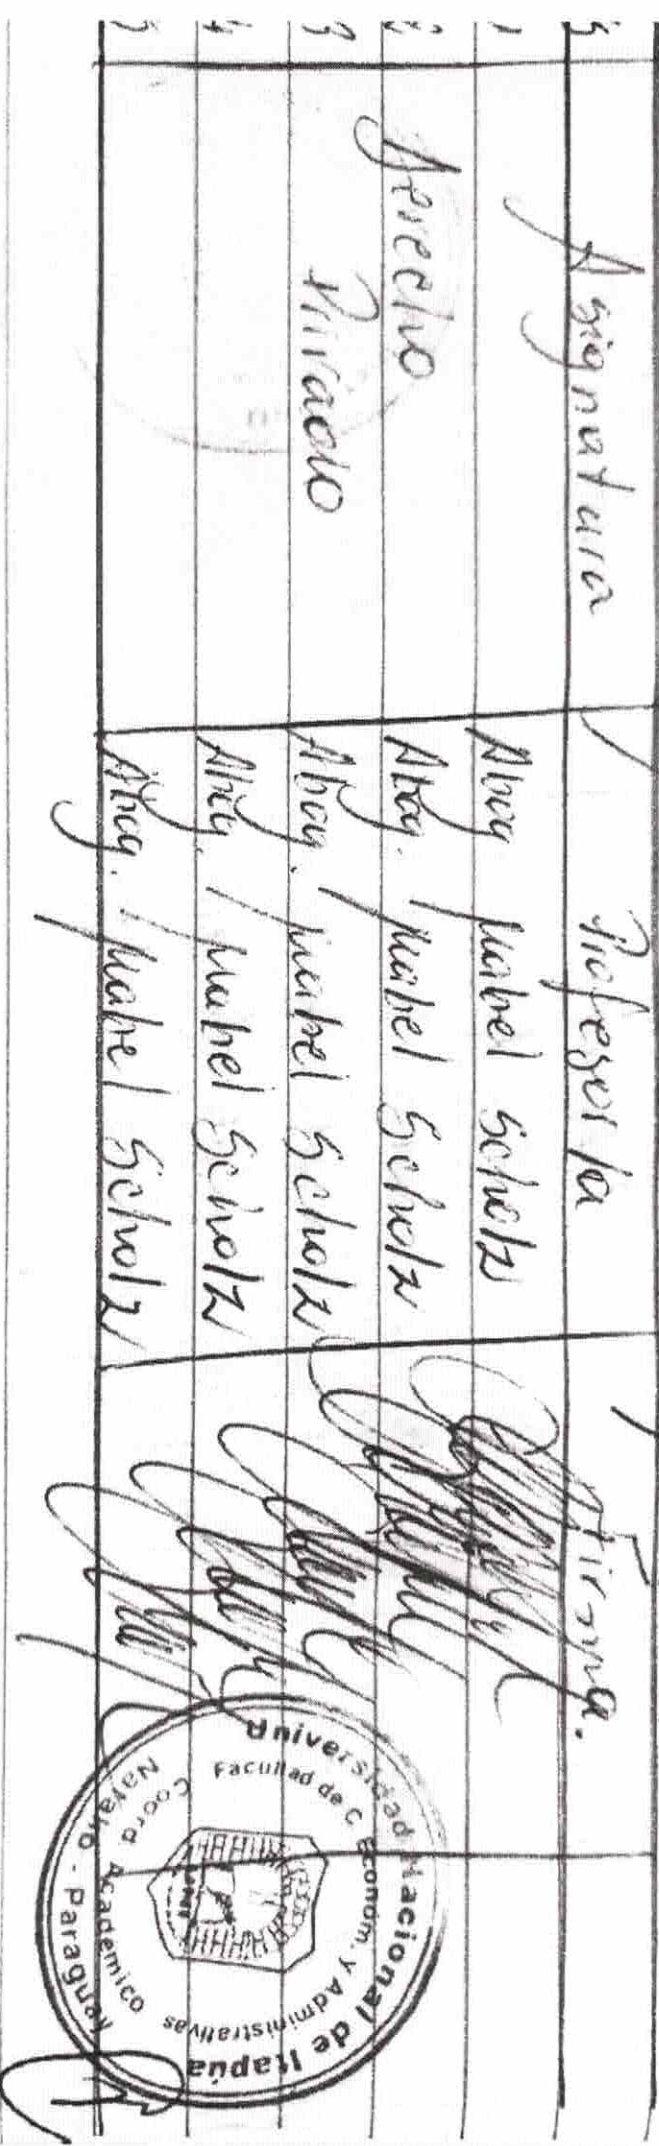 Asignatura Profesor/a Firma.
Abog Mabel Scholz
Derecho Abog. Mabel Scholz
Privado Abog. Mabel Scholz
Abog. Mabel Scholz
Abog. Mabel Scholz
Universidad Nacional de Itapúa
Facultad de C. Económ. y Administrativas
Coord Académico
Natalio - Paraguay